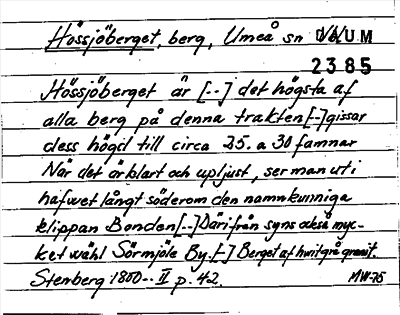 Hössjöberget, berg, Umeå sn DAUM
2385
Hössjöberget är [--] det högsta af
alla berg på denna trakten [--] gissar
dess högd till circa 25. a 30 famnar
När det är blart och upljust, ser man uti
hafwet långt söderom den namnkunniga
klippan Bonden [--] Därifrån syns också myc-
ket wähl Sörmjöle By. [--] Berget af hwitgrå granit.
Stenberg 1800-- II p. 42. MW-75